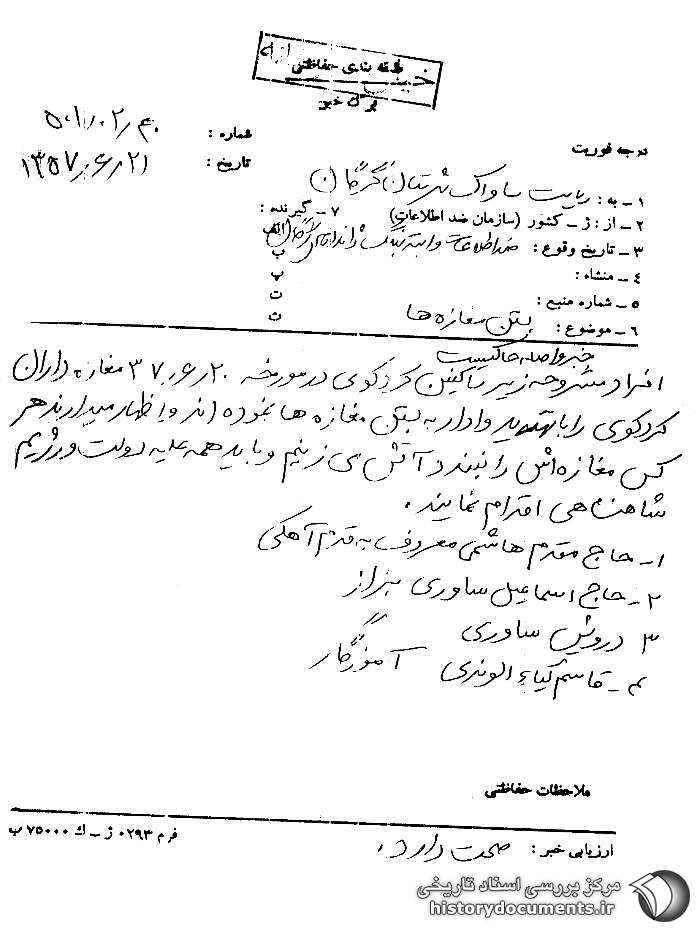 طبقه بندی حفاظتی
خیلی محرمانه
برگ خبر
درجه فوریت
شماره : ۵۰۱/۰۲/۴۰
تاریخ : ۱۳۵۷/۶/۲۱
۱ – به : ریاست ساواک شهرستان گرگان
۲ – از : ژ – کشور (سازمان ضد اطلاعات) ۷ – گیرنده :
۳ – تاریخ وقوع : ضد اطلاعات وابسته بهنگ ژاندارمری گرگان الف
ب
۴ – منشاء : پ
۵ – شماره منبع : ت
۶ – موضوع : بستن مغازه ها ث
خبر واصله حاکیست
افراد مشروحه زیر ساکنین کردکوی در مورخه ۳۷/۶/۲۰ مغازه داران
کردکوی را با تهدید وادار به بستن مغازه ها نموده اند و اظهار میدارند هر
کس مغازه‌اش را نبندد آتش می زنیم و باید همه علیه دولت و رژیم
شاهنشاهی اقدام نمایند .
۱ – حاج مقدم هاشمی معروف به قدم آهکی
۲ – حاج اسماعیل ساوری بزاز
۳ درویش ساوری
۴ – قاسم کیاء الوندی آموزگار
ملاحظات حفاظتی
فرم ۰۲۹۳ ژ – ک ۷۵۰۰۰ ب
ارزیابی خبر : صحت دارد .
مرکز بررسی اسناد تاریخی
historydocuments.ir